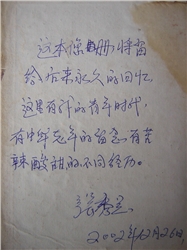 这本像册特留
给后来永久的回忆
这里有许的青年时代,
有中年老年的留念,有苦
辣酸甜的不同经历。
张秀兰
2002年12月26日